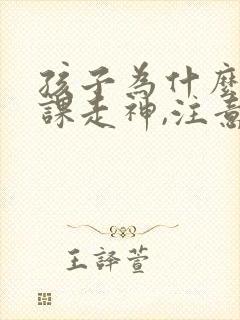 孩子為什麼
課走神,注意
王譯萱